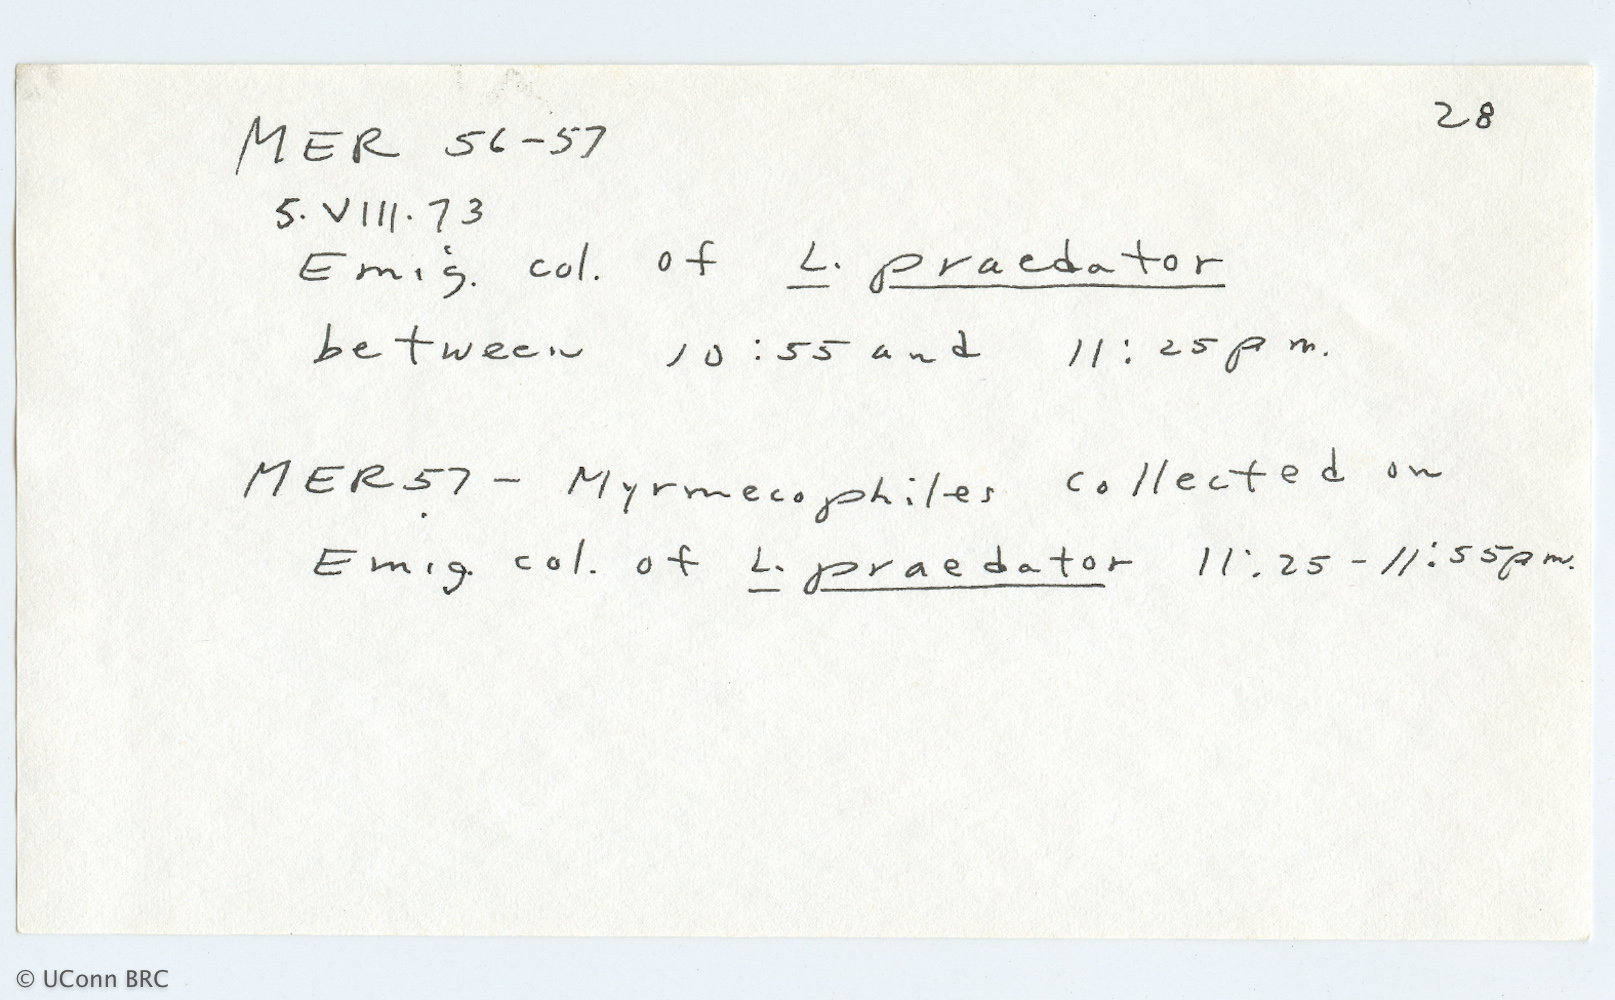 28
MER 56-57
5. VIII. 73
Emig. col. of L. praedator
between 10:55 and 11:25 pm.
MER 57 - Myrmecophiles collected on
Emig. col. of L. praedator 11:25 - 11:55 pm.
© UConn BRC